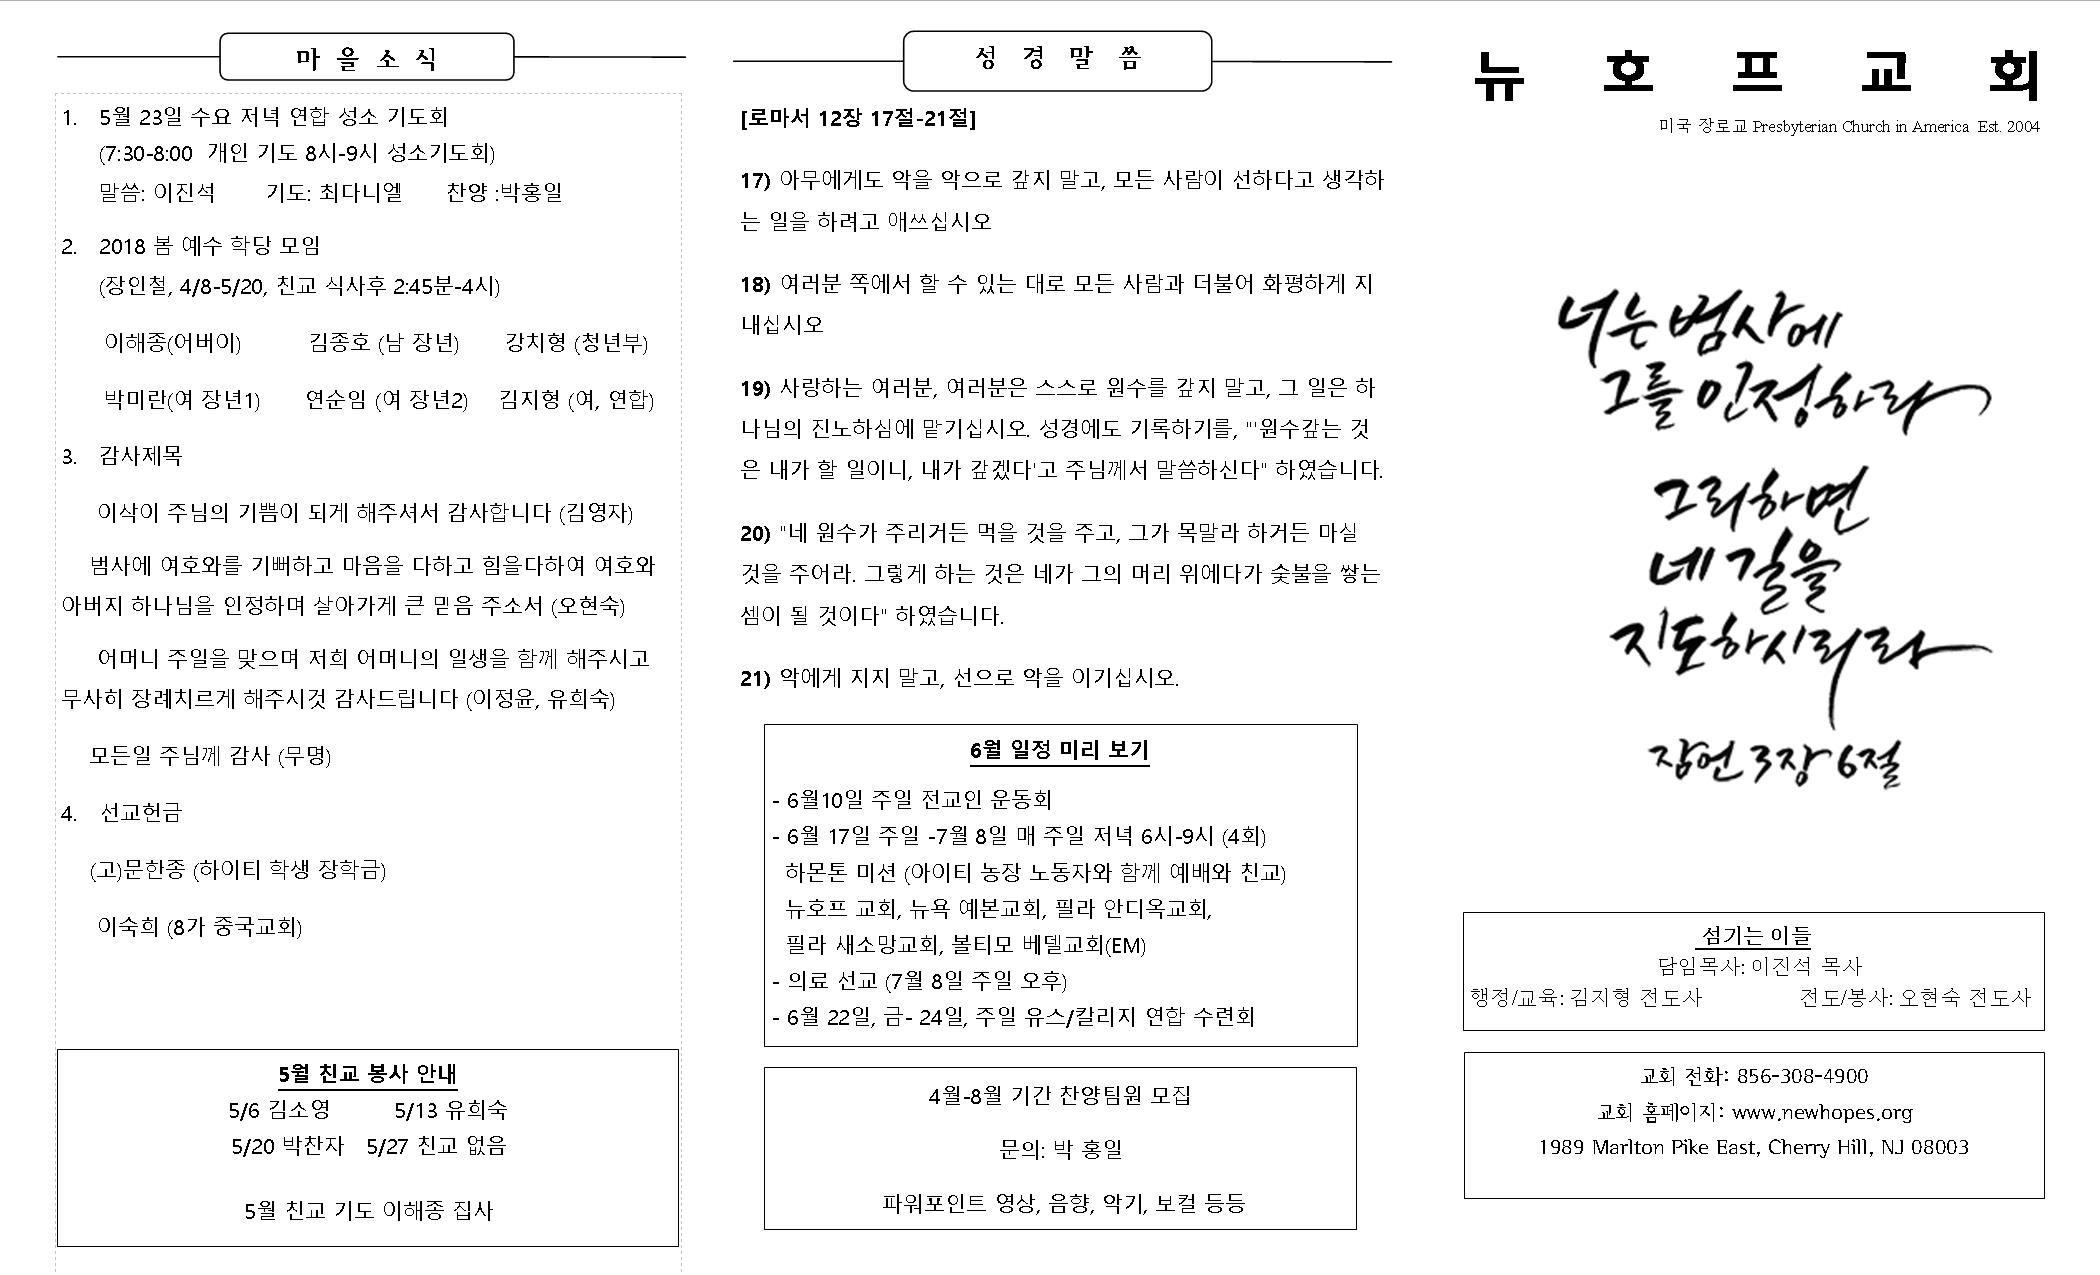 마 을 소 식
1. 5월 23일 수요 저녁 연합 성소 기도회
(7:30-8:00 개인 기도 8시-9시 성소기도회)
말씀: 이진석 기도: 최다니엘 찬양 :박홍일
2. 2018 봄 예수 학당 모임
(장인철, 4/8-5/20, 친교 식사후 2:45분-4시)
이해종(어버이) 김종호 (남 장년) 강치형 (청년부)
박미란(여 장년1) 연순임 (여 장년2) 김지형 (여, 연합)
3. 감사제목
이삭이 주님의 기쁨이 되게 해주셔서 감사합니다 (김영자)
범사에 여호와를 기뻐하고 마음을 다하고 힘을다하여 여호와
아버지 하나님을 인정하며 살아가게 큰 믿음 주소서 (오현숙)
어머니 주일을 맞으며 저희 어머니의 일생을 함께 해주시고
무사히 장례치르게 해주시것 감사드립니다 (이정윤, 유희숙)
모든일 주님께 감사 (무명)
4. 선교헌금
(고)문한종 (하이티 학생 장학금)
이숙희 (8가 중국교회)
5월 친교 봉사 안내
5/6 김소영 5/13 유희숙
5/20 박찬자 5/27 친교 없음
5월 친교 기도 이해종 집사
성 경 말 씀
[로마서 12장 17절-21절]
17) 아무에게도 악을 악으로 갚지 말고, 모든 사람이 선하다고 생각하
는 일을 하려고 애쓰십시오
18) 여러분 쪽에서 할 수 있는 대로 모든 사람과 더불어 화평하게 지
내십시오
19) 사랑하는 여러분, 여러분은 스스로 원수를 갚지 말고, 그 일은 하
나님의 진노하심에 맡기십시오. 성경에도 기록하기를, "'원수갚는 것
은 내가 할 일이니, 내가 갚겠다'고 주님께서 말씀하신다" 하였습니다.
20) "네 원수가 주리거든 먹을 것을 주고, 그가 목말라 하거든 마실
것을 주어라. 그렇게 하는 것은 네가 그의 머리 위에다가 숯불을 쌓는
셈이 될 것이다" 하였습니다.
21) 악에게 지지 말고, 선으로 악을 이기십시오.
6월 일정 미리 보기
- 6월10일 주일 전교인 운동회
- 6월 17일 주일 -7월 8일 매 주일 저녁 6시-9시 (4회)
하몬톤 미션 (아이티 농장 노동자와 함께 예배와 친교)
뉴호프 교회, 뉴욕 예본교회, 필라 안디옥교회,
필라 새소망교회, 볼티모 베델교회(EM)
- 의료 선교 (7월 8일 주일 오후)
- 6월 22일, 금- 24일, 주일 유스/칼리지 연합 수련회
4월-8월 기간 찬양팀원 모집
문의: 박 홍일
파워포인트 영상, 음향, 악기, 보컬 등등
뉴 호 프 교 회
미국 장로교 Presbyterian Church in America Est. 2004
너는 범사에
그를 인정하라
그리하면
네 길을
지도하시리라
잠언 3장 6절
섬기는 이들
담임목사: 이진석 목사
행정/교육: 김지형 전도사 전도/봉사: 오현숙 전도사
교회 전화: 856-308-4900
교회 홈페이지: www.newhopes.org
1989 Marlton Pike East, Cherry Hill, NJ 08003